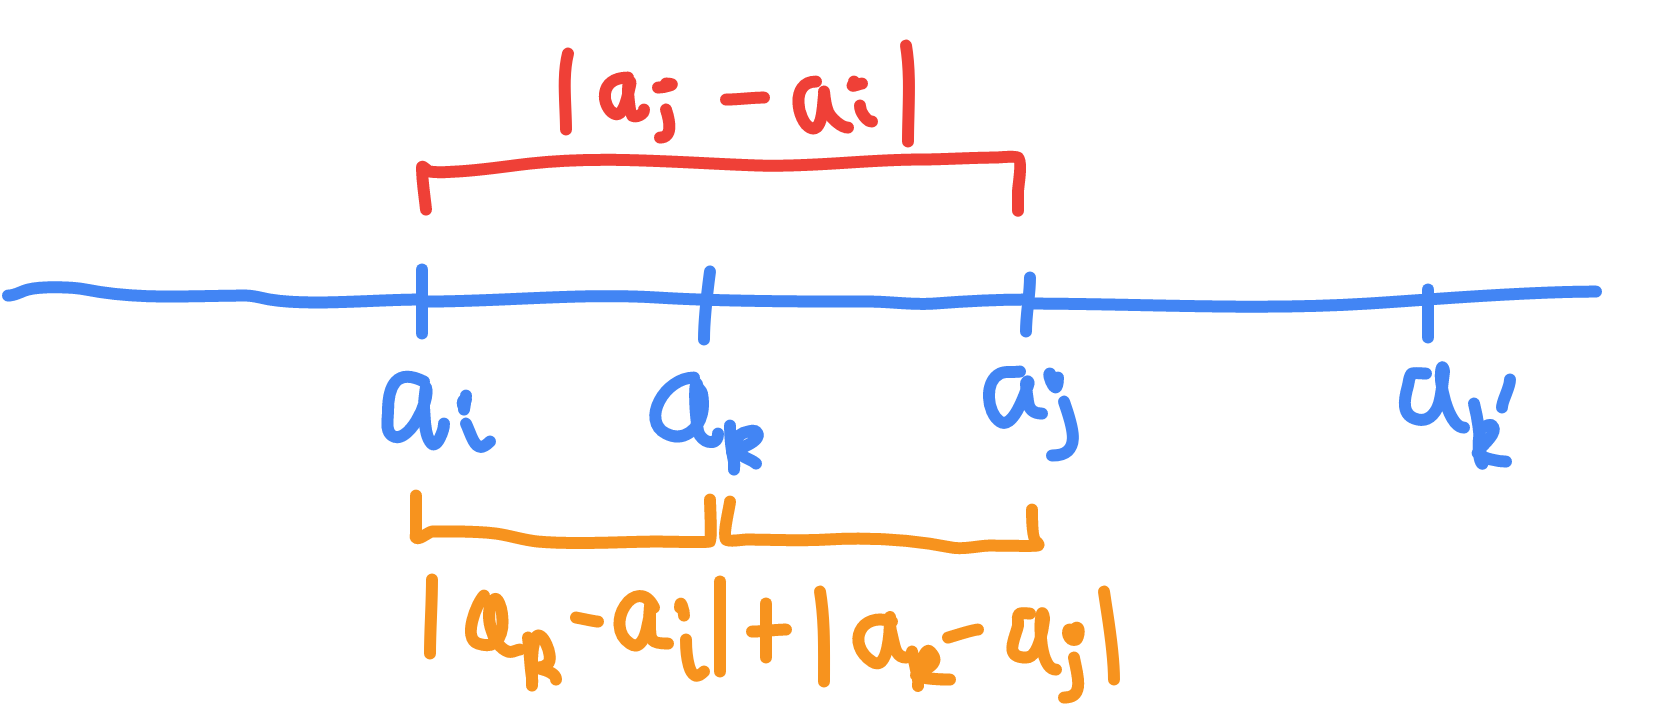 |aj - ai|
ai ak aj ak'
|ak - ai| + |ak - aj|